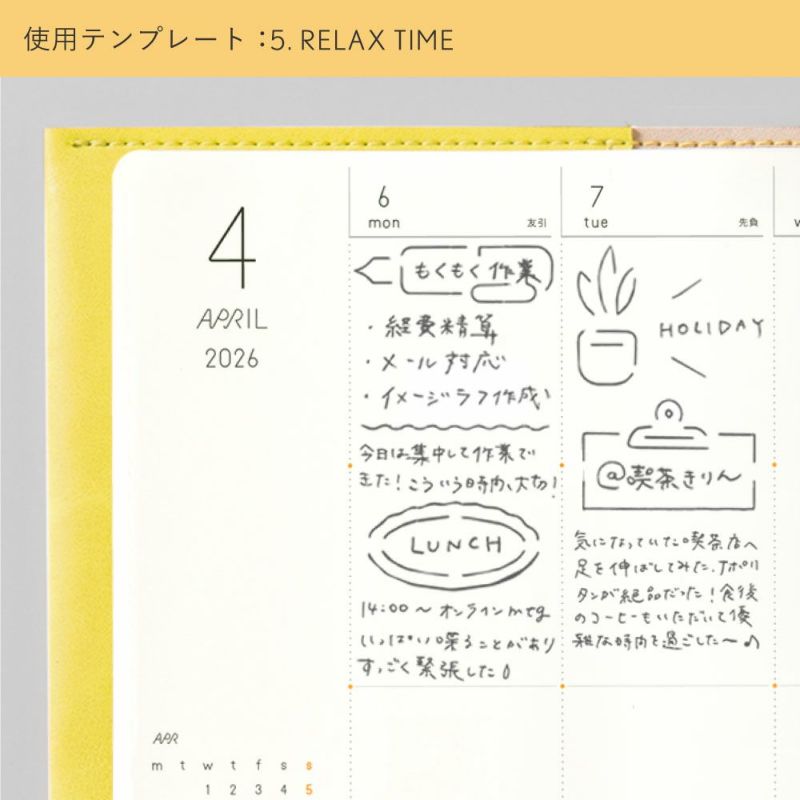 使用テンプレート：5. RELAX TIME
4
APRIL
2026
6
mon 友引
もくもく作業
・経費精算
・メール対応
・イメージラフ作成
今日は集中して作業で
きた！こういう時間、大切！
LUNCH
14:00〜オンラインmtg
いっぱい喋ることがあり
すっごく緊張した
7
tue 先負
HOLIDAY
@喫茶きりん
気になっていた喫茶店へ
足を伸ばしてみた。ナポリ
タンが絶品だった！食後
のコーヒーもいただいて優
雅な時間を過ごした〜♪
w
APR
m t w t f s s
1 2 3 4 5